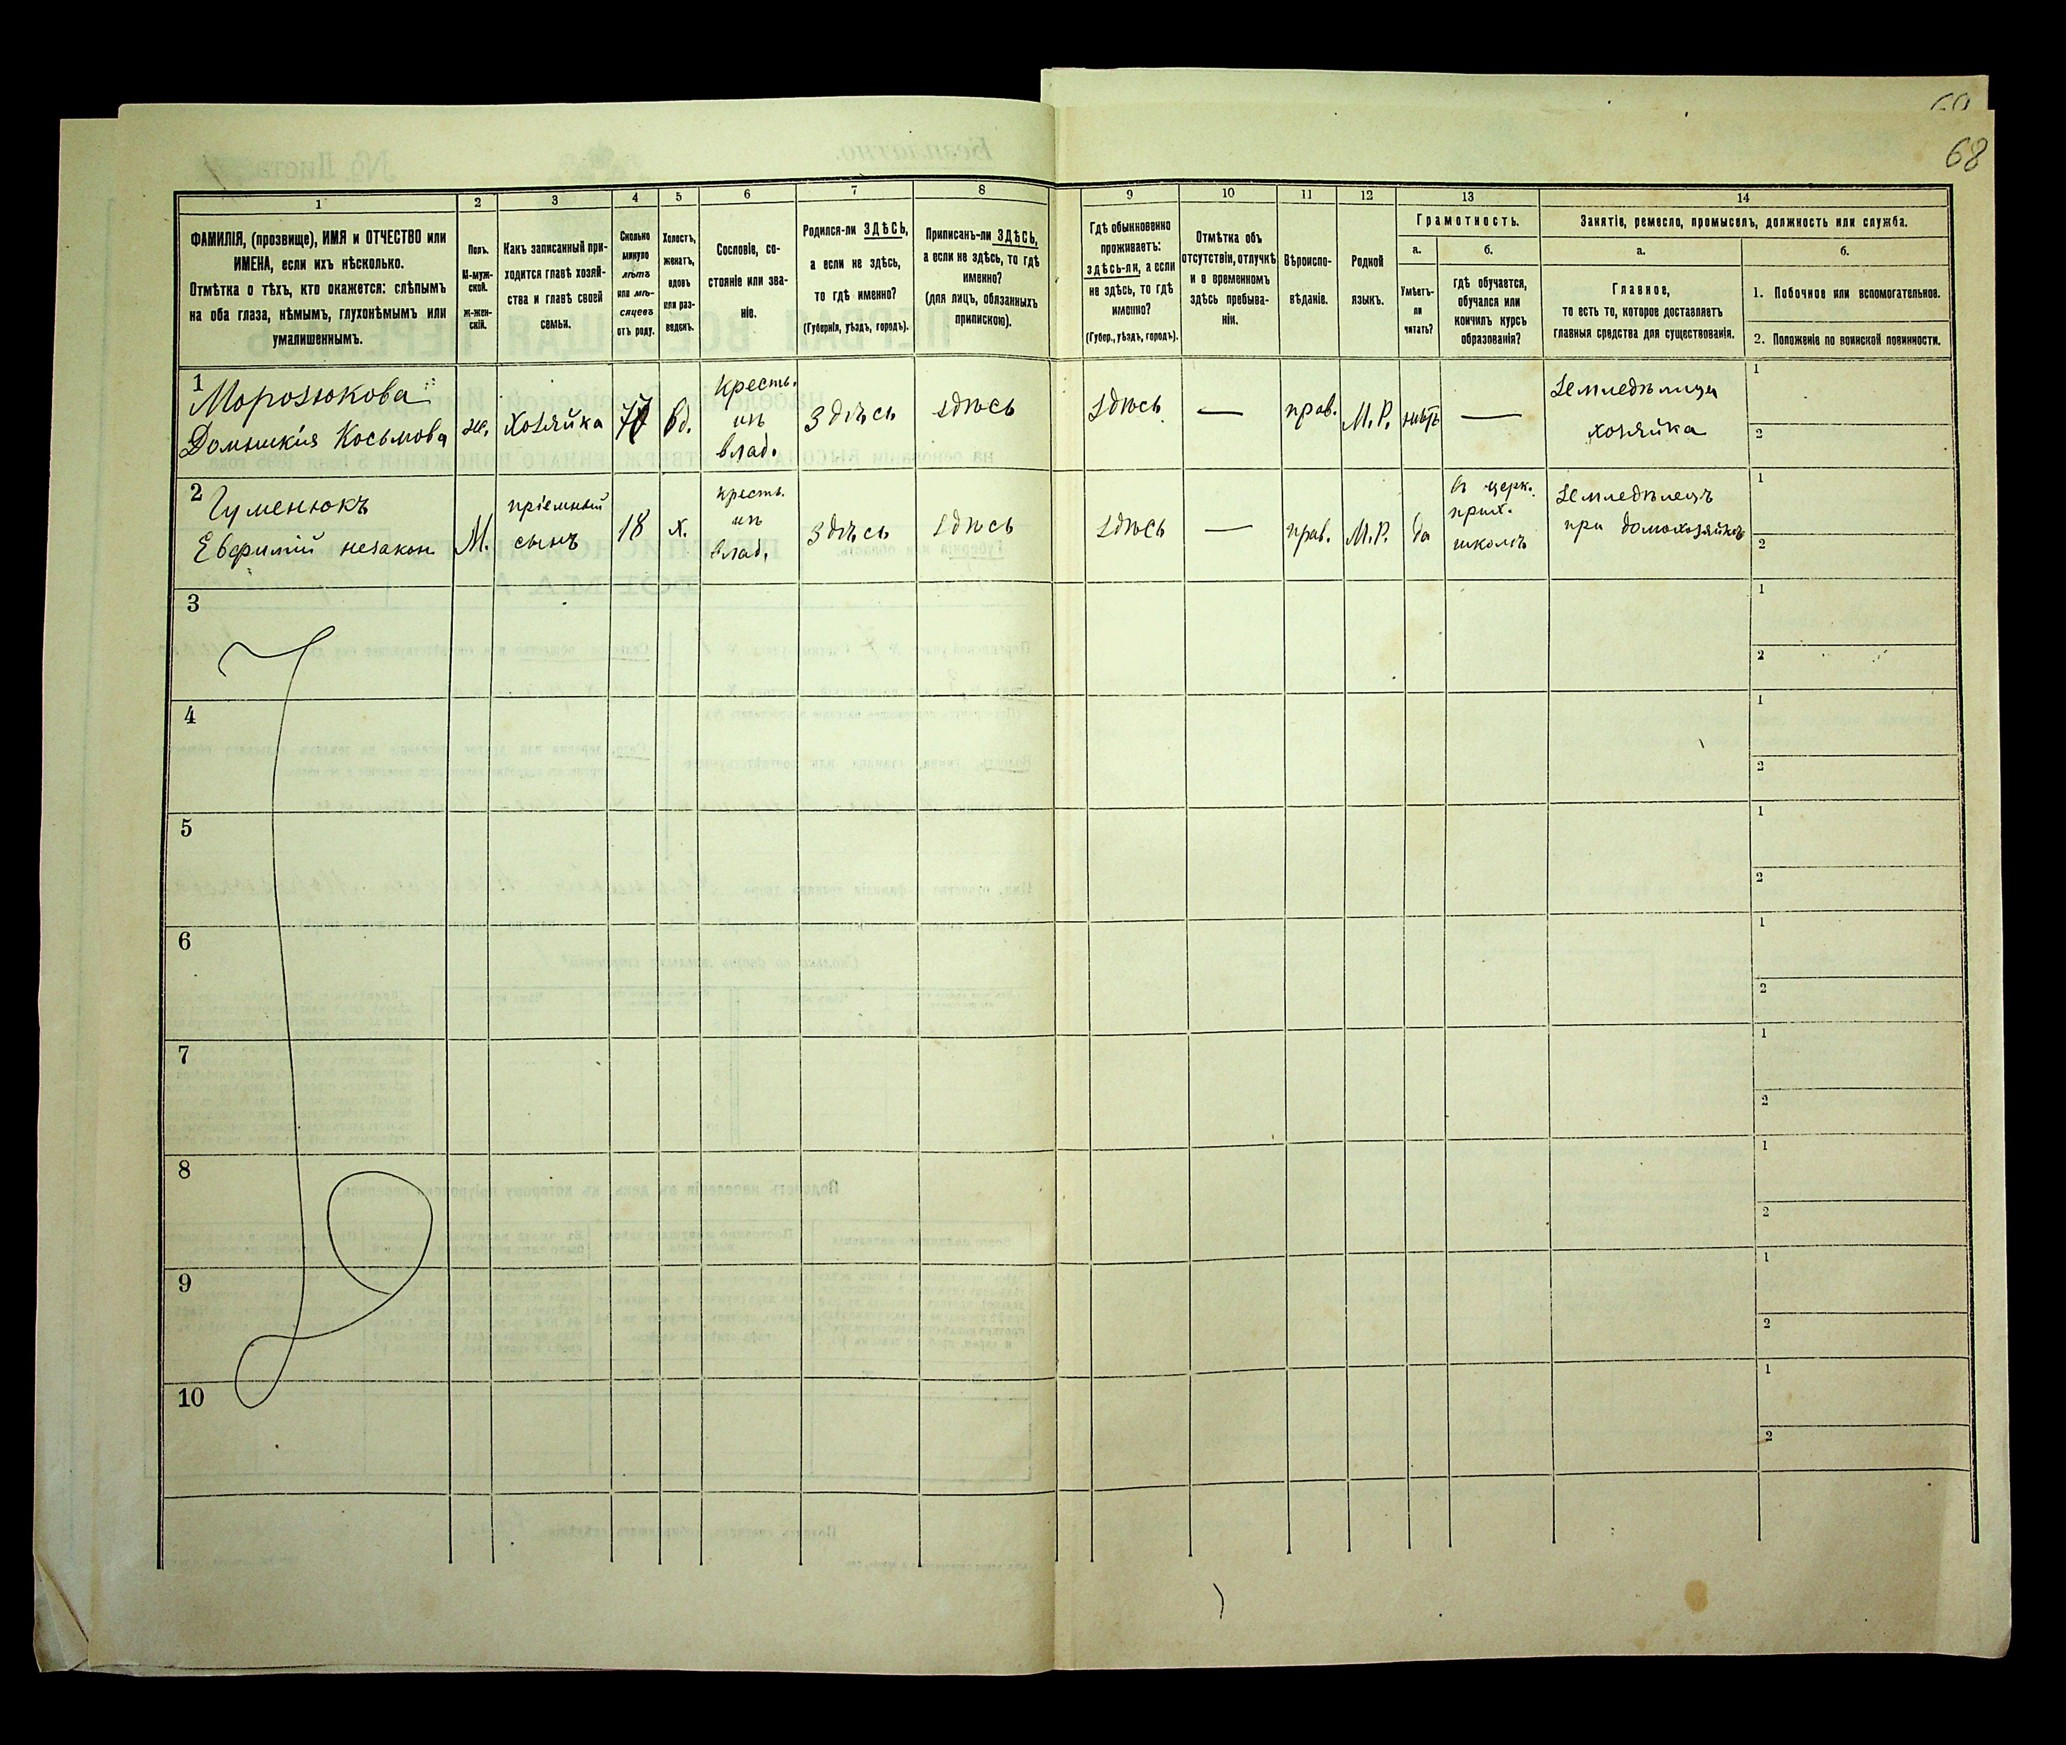 68
1
ФАМИЛІЯ, (прозвище), ИМЯ и ОТЧЕСТВО или
ИМЕНА, если ихъ нѣсколько.
Отмѣтка о тѣхъ, кто окажется: слѣпымъ
на оба глаза, нѣмымъ, глухонѣмымъ или
умалишеннымъ.
2
Полъ.
М-муж-
ской.
Ж-жен-
скій.
3
Какъ записанный при-
ходится главѣ хозяй-
ства и главѣ своей
семьи.
4
Сколько
минуло
лѣтъ
или мѣ-
сяцевъ
отъ роду.
5
Холостъ,
женатъ,
вдовъ
или раз-
веденъ.
6
Сословіе, со-
стояніе или зва-
ніе.
7
Родился-ли ЗДѢСЬ,
а если не здѣсь,
то гдѣ именно?
(Губернія, уѣздъ, городъ).
8
Приписанъ-ли ЗДѢСЬ,
а если не здѣсь, то гдѣ
именно?
(для лицъ, обязанныхъ
припискою).
9
Гдѣ обыкновенно
проживаетъ:
здѣсь-ли, а если
не здѣсь, то гдѣ
именно?
(Губер., уѣздъ, городъ).
10
Отмѣтка объ
отсутствіи, отлучкѣ
и о временномъ
здѣсь пребыва-
ніи.
11
Вѣроиспо-
вѣданіе.
12
Родной
языкъ.
13
Грамотность.
а.
Умѣетъ-
ли
читать?
б.
гдѣ обучается,
обучался или
кончилъ курсъ
образованія?
14
Занятіе, ремесло, промыселъ, должность или служба.
а.
Главное,
то есть то, которое доставляетъ
главныя средства для существованія.
б.
1. Побочное или вспомогательное.
2. Положеніе по воинской повинности.
1
Морозюкова
Домникія Косьмова
ж.
хозяйка
вд.
кресть.
изъ
влад.
Здѣсь
здѣсь
здѣсь
—
прав.
М.Р.
нѣтъ
—
Земледѣлица
хозяйка
1
2
2
Гуменюкъ
Евфимій незакон
М.
пріемный
сынъ
18
х.
кресть.
изъ
влад.
Здѣсь
здѣсь
здѣсь
—
прав.
М.Р.
да
въ церк.
прих.
школѣ
Земледѣлецъ
при домохозяйкѣ
1
2
3
1
2
4
1
2
5
1
2
6
1
2
7
1
2
8
1
2
9
1
2
10
1
2